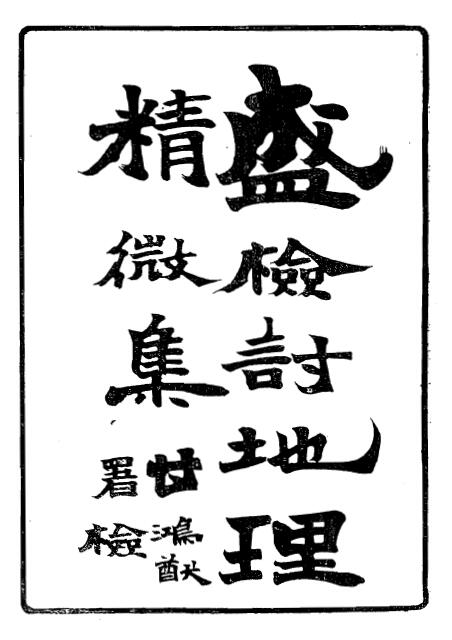 盛檢討地理
精微集
甘鴻猷
署檢